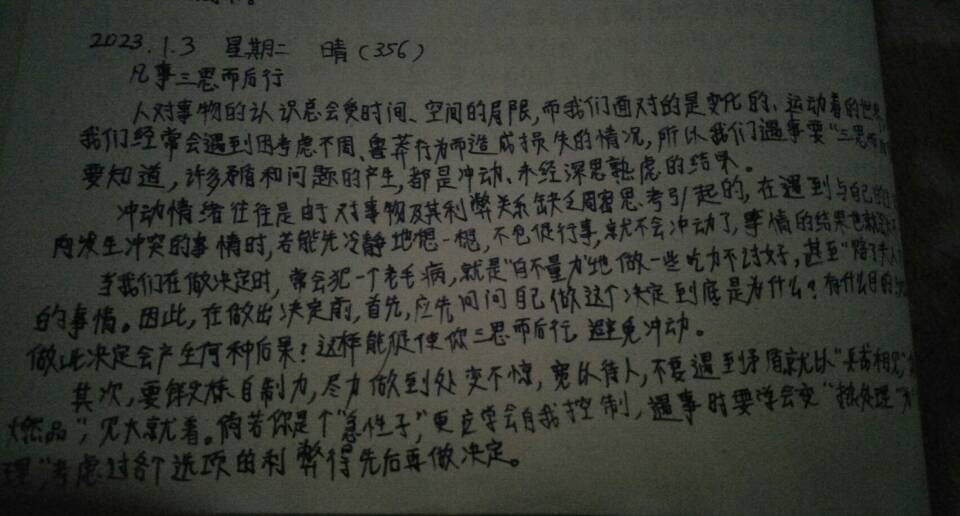 2023.1.3 星期二 晴(356)
凡事三思而后行
人对事物的认识总会受时间、空间的局限,而我们面对的是变化的、运动着的世界
我们经常会遇到因考虑不周、鲁莽行为而造成损失的情况,所以我们遇事要“三思而
要知道,许多矛盾和问题的产生,都是冲动、未经深思熟虑的结果。
冲动情绪往往是由于对事物及其利弊关系缺乏周密思考引起的,在遇到与自己的
向发生冲突的事情时,若能先冷静地想一想,不仓促行事,就不会冲动了,事情的结果也就
当我们在做决定时,常会犯一个老毛病,就是“自不量力”地做一些吃力不讨好,甚至“赔了夫人
的事情。因此,在做出决定前,首先,应先问问自己做这个决定到底是为什么?有什么目的
做此决定会产生何种后果?这样能促使你三思而后行,避免冲动。
其次,要锻炼自制力,尽力做到处变不惊,宽以待人,不要遇到矛盾就以“兵戎相见”,
燃品”,见火就着。倘若你是个“急性子”,更应学会自我控制,遇事时要学会变“热处理”为
理”,考虑过各个选项的利弊得失后再做决定。